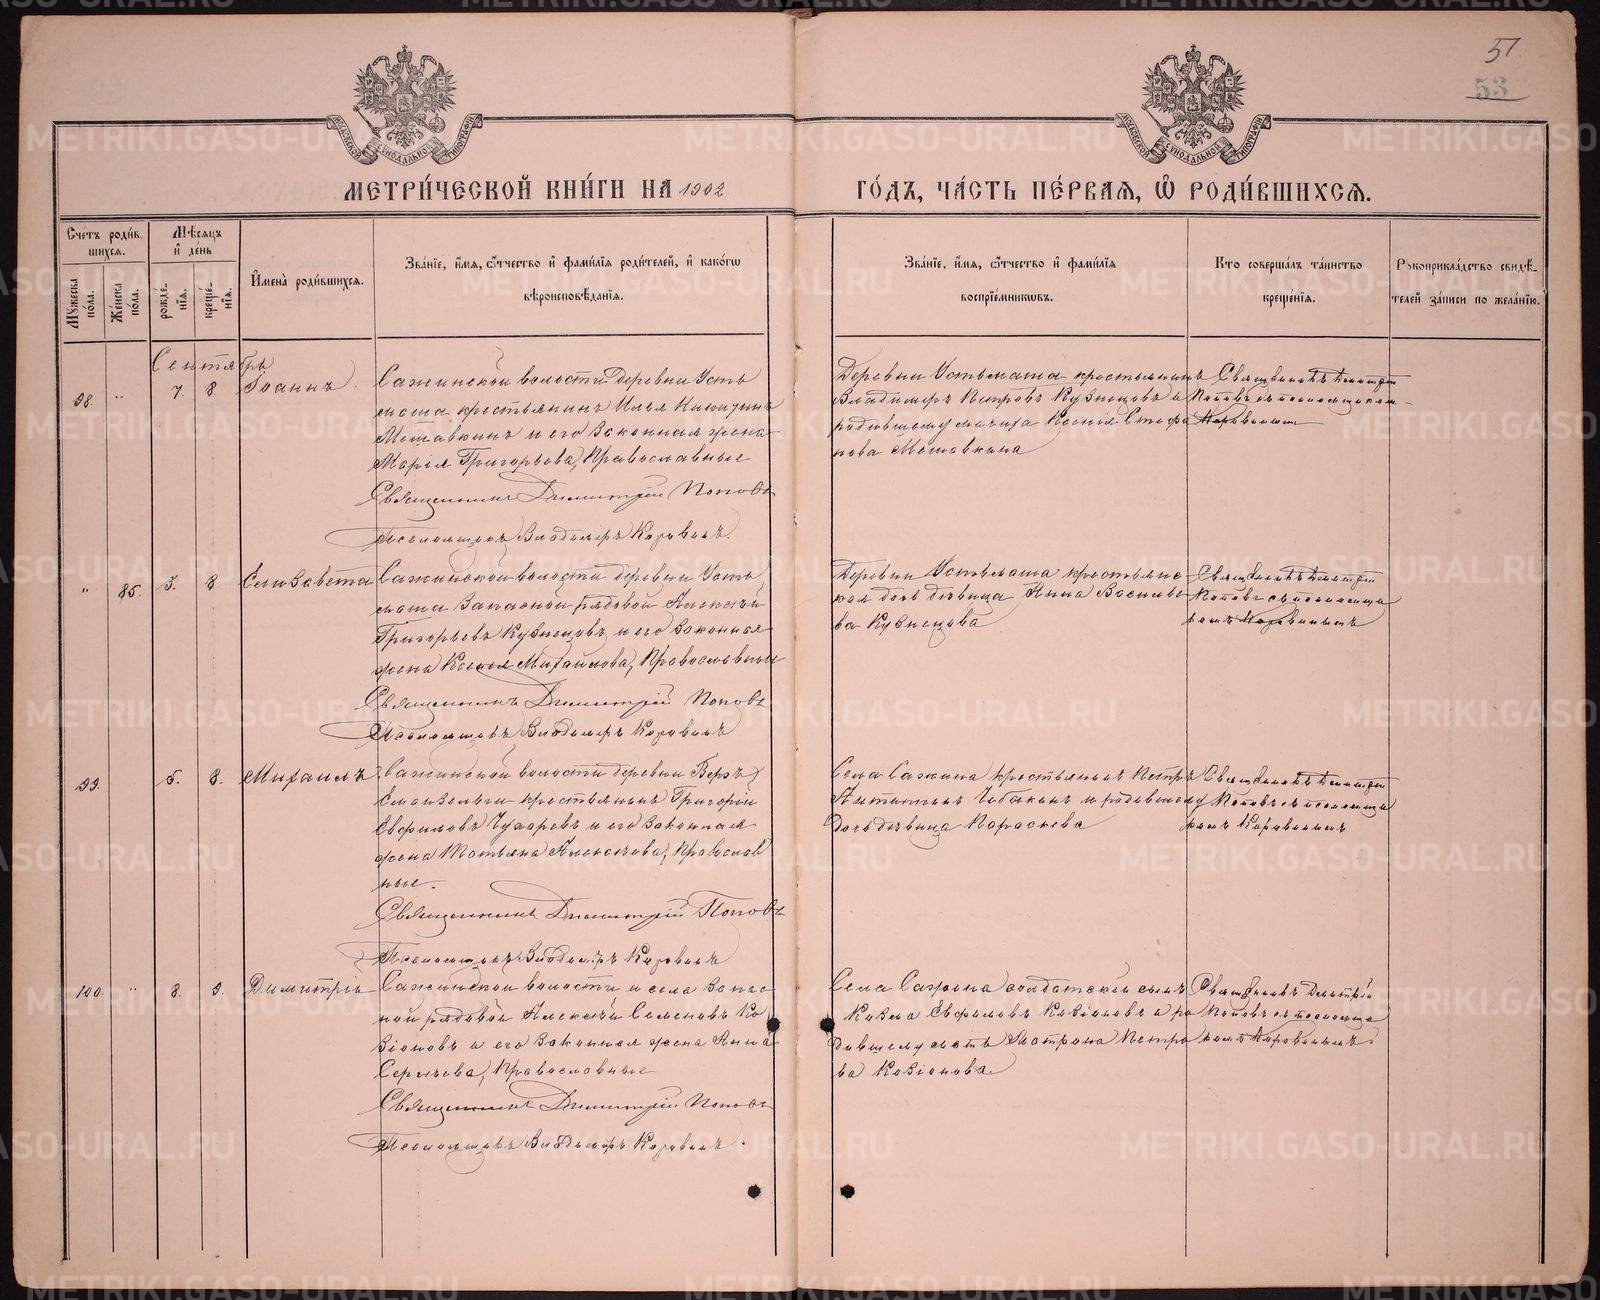 51
53
МОСКОВСКОЙ СѴНОДАЛЬНОЙ ТИПОГРАФІИ
МОСКОВСКОЙ СѴНОДАЛЬНОЙ ТИПОГРАФІИ
МЕТРИ́ЧЕСКОЙ КНИ́ГИ НА 1902 ГО́ДЪ, ЧА́СТЬ ПЕ́РВАЯ, Ѽ РОДИ́ВШИХСѦ.
Сче́тъ роди́в
шихсѧ.
Мꙋжеска
по́ла.
Же́нска
по́ла.
Мѣ́сѧцъ
и҆ де́нь
рожде́
нїѧ.
креще́
нїѧ.
И҆мена̀ роди́вшихсѧ.
Зва́нїе, и҆́мѧ, ѻ҆́тчество и҆ фами́лїѧ роди́телей, и҆ како́гѡ
вѣроисповѣ́данїѧ.
Зва́нїе, и҆́мѧ, ѻ҆́тчество и҆ фами́лїѧ
воспрїе́мникѡвъ.
Кто̀ соверша́лъ та́инство
креще́нїѧ.
Рꙋкоприкла́дство свидѣ́-
телей за́писи по жела́нїю.
Сентябрь
98. " 7. 8 Іоаннъ.
Сажинской волости деревни Усть
маша крестьянинъ Илья
и его законная жена
Марія Григорьева, Православные
Священникъ Димитрій Поповъ
Псаломщикъ Владиміръ Коровинъ.
Деревни Устьмаша крестьянинъ
Владиміръ Петровъ Кузнецовъ и
родившему мачиха Ксенія Стефа
нова
Священникъ Димитрій
Поповъ съ псаломщиком
Коровиным
" 85. 5. 8 Елизавета
Сажинской волости деревни Усть
маша Запасной рядовой Алексѣй
Григорьевъ Кузнецовъ и его законная
жена Ксенія Михайлова, Православные
Священникъ Димитрій Поповъ
Псаломщикъ Владиміръ Коровинъ
Деревни Устьмаша крестьянс
кая дочь дѣвица Анна Василье
ва Кузнецова
Священникъ Димитрій
Поповъ съ псаломщи
комъ Коровинымъ
99. 6. 8. Михаилъ
Сажинской волости деревни Верхъ
крестьянинъ Григорій
Евфимовъ Чухаревъ и его законная
жена Татьяна Алексѣева, Православ
ные.
Священникъ Димитрій Поповъ
Псаломщикъ Владиміръ Коровинъ
Села Сажина крестьянинъ Петръ
и родившему
дочь дѣвица Параскева
Священникъ Димитрій
Поповъ съ псаломщи
комъ Коровинымъ
100. " 8. 9. Димитрій
Сажинской волости и села Запас
ной рядовой Алексѣй Семеновъ Ка
зіоновъ и его законная жена Анна
Сергѣева, Православные
Священникъ Димитрій Поповъ
Псаломщикъ Владиміръ Коровинъ.
Села Сажина солдатскій сынъ
Козма Евфимовъ Казіоновъ и ро
дившему мать Матрона Петро
ва Казіонова.
Священникъ Димитрій
Поповъ съ псаломщи
комъ Коровинымъ
METRIKI.GASO-URAL.RU